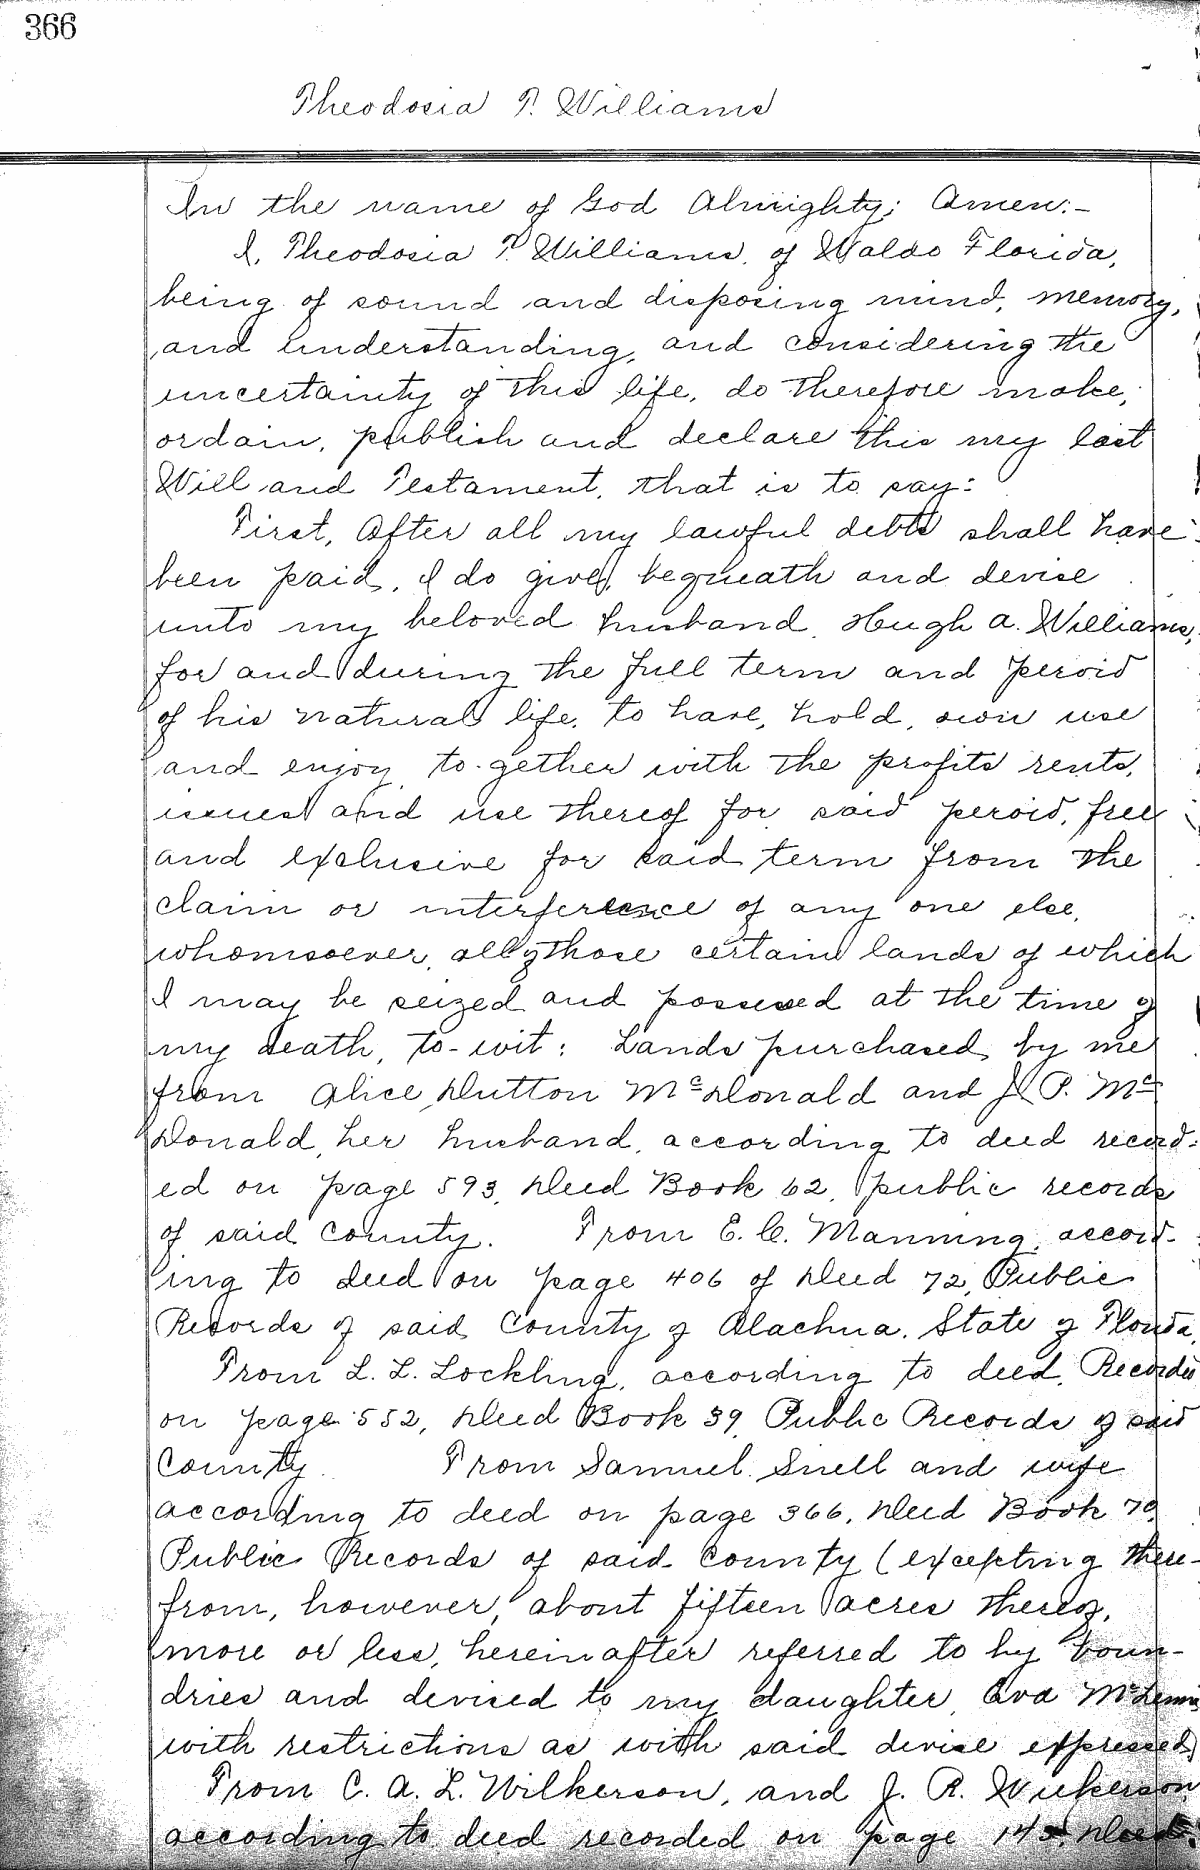 366
Theodosia P. Williams
In the name of God Almighty; Amen:-
I, Theodosia P. Williams, of Waldo Florida,
being of sound and disposing mind, memory,
and understanding, and considering the
uncertainty of this life, do therefore make,
ordain, publish and declare this my last
Will and Testament, that is to say:
First, After all my lawful debts shall have
been paid, I do give, bequeath and devise
unto my beloved husband, Hugh A. Williams,
for and during the full term and peroid
of his natural life, to have, hold, own use
and enjoy, to-gether with the profits rents,
issues and use thereof for said peroid, free
and exclusive for said term from the
claim or interference of any one else,
whomsoever, all of those certain lands of which
I may be seized and possessed at the time of
my death, to-wit: Lands purchased by me
from Alice Dutton McDonald and J. P. Mc
Donald, her husband, according to deed record-
ed on page 593, Deed Book 62, public records
of said County. From E. C. Manning, accord-
ing to deed on page 406 of Deed 72, Public
Records of said County of Alachua, State of Florida,
From L. L. Lockling, according to deed, Recorded
on page 552, Deed Book 39, Public Records of said
County. From Samuel Snell and wife
according to deed on page 366, Deed Book 70,
Public Records of said County (excepting there-
from, however, about fifteen acres thereof,
more or less, hereinafter referred to by boun-
dries and devised to my daughter,
with restrictions as with said devise expressed)
From C. A. L. Wilkerson, and J. R. Wilkerson
according to deed recorded on page Deed